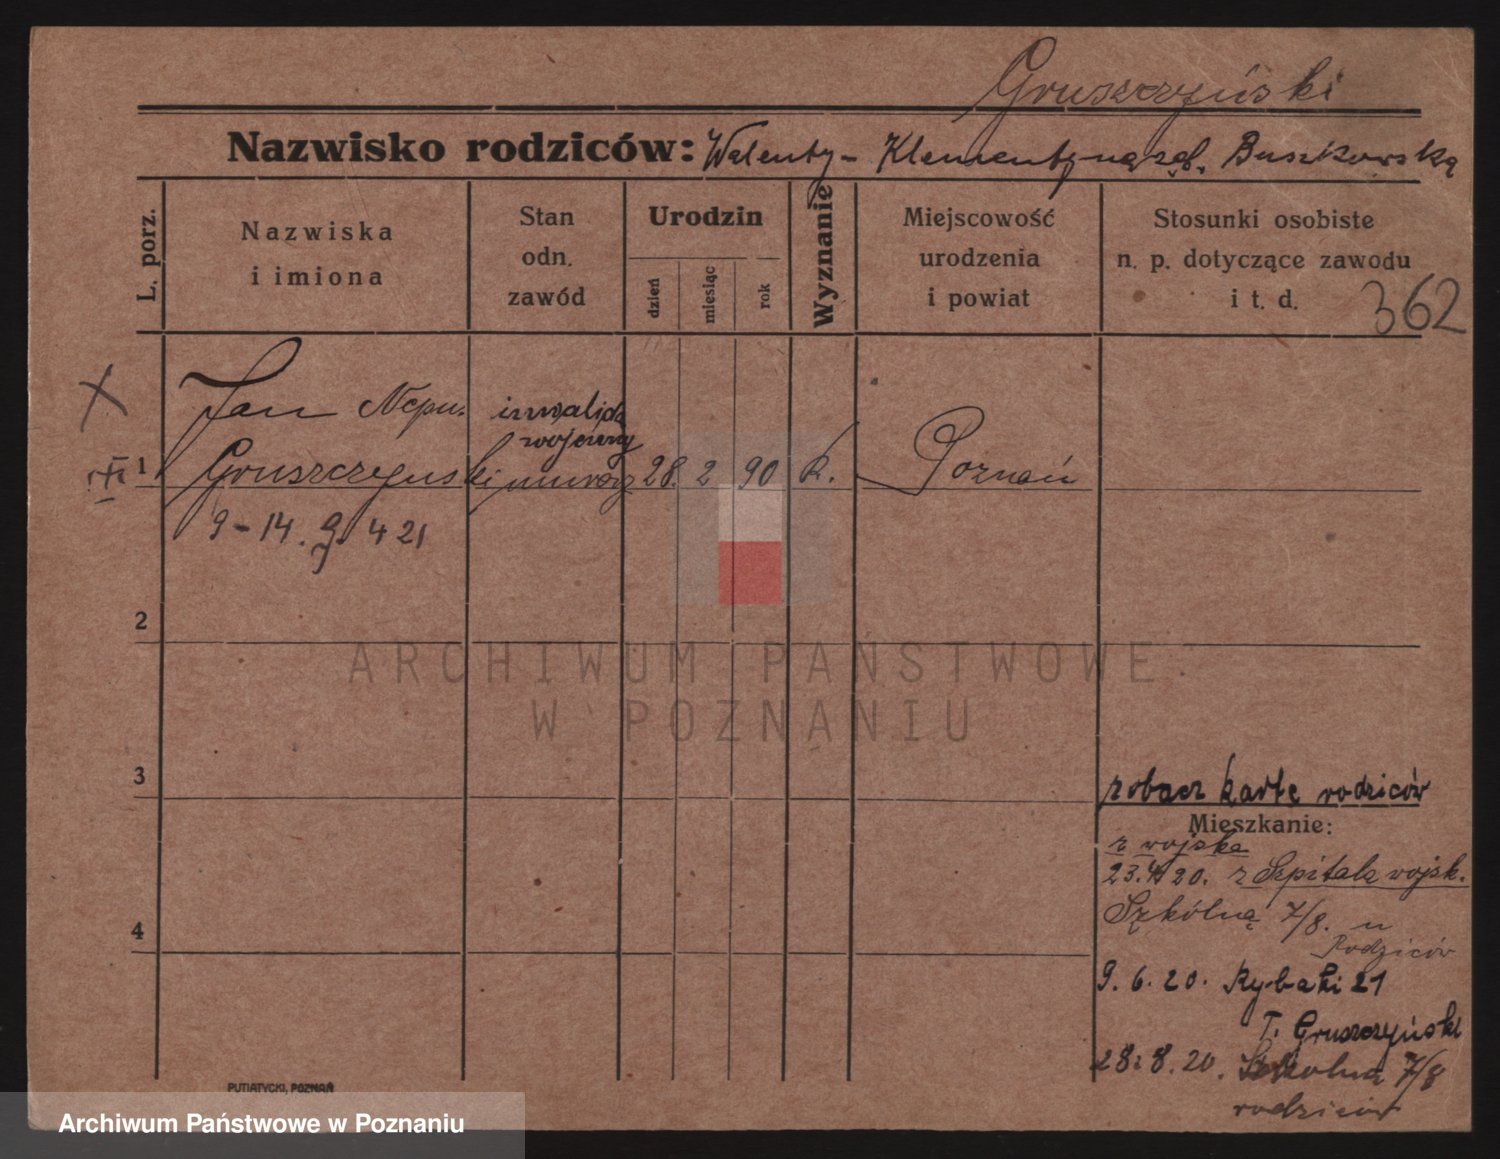 Gruszczyński
Nazwisko rodziców: Walenty - Klementyna zęb. Buszkowska
L. porz.
Nazwiska
i imiona
Stan
odn.
zawód
Urodzin
dzień
miesiąc
rok
Wyznanie
Miejscowość
urodzenia
i powiat
Stosunki osobiste
n. p. dotyczące zawodu
i t. d.
362
X
Jan Nepu.
inwalida
wojenny
1 Gruszczynski murarz 28. 2 90 k. Poznań
9-14. 9. 4 21
2
ARCHIWUM PAŃSTWOWE
W POZNANIU
3
zobacz kartę rodziców
Mieszkanie:
z wojska
23.4.20. z Szpitala wojsk.
Szkólna 7/8. u
Rodziców
4
9. 6. 20. Rybaki 21
T. Gruszczyński
28. 8. 20. Szkolna 7/8
rodziców
PUTIATYCKI, POZNAŃ
Archiwum Państwowe w Poznaniu